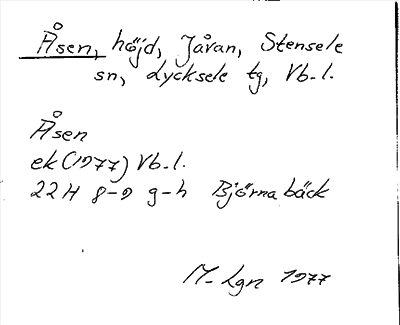 Åsen, höjd, Jåvan, Stensele
sn, Lycksele tg, Vb.l.
Åsen
ek (1977) Vb.l.
22H 8-9 g-h Björnabäck
M-Lgn 1977